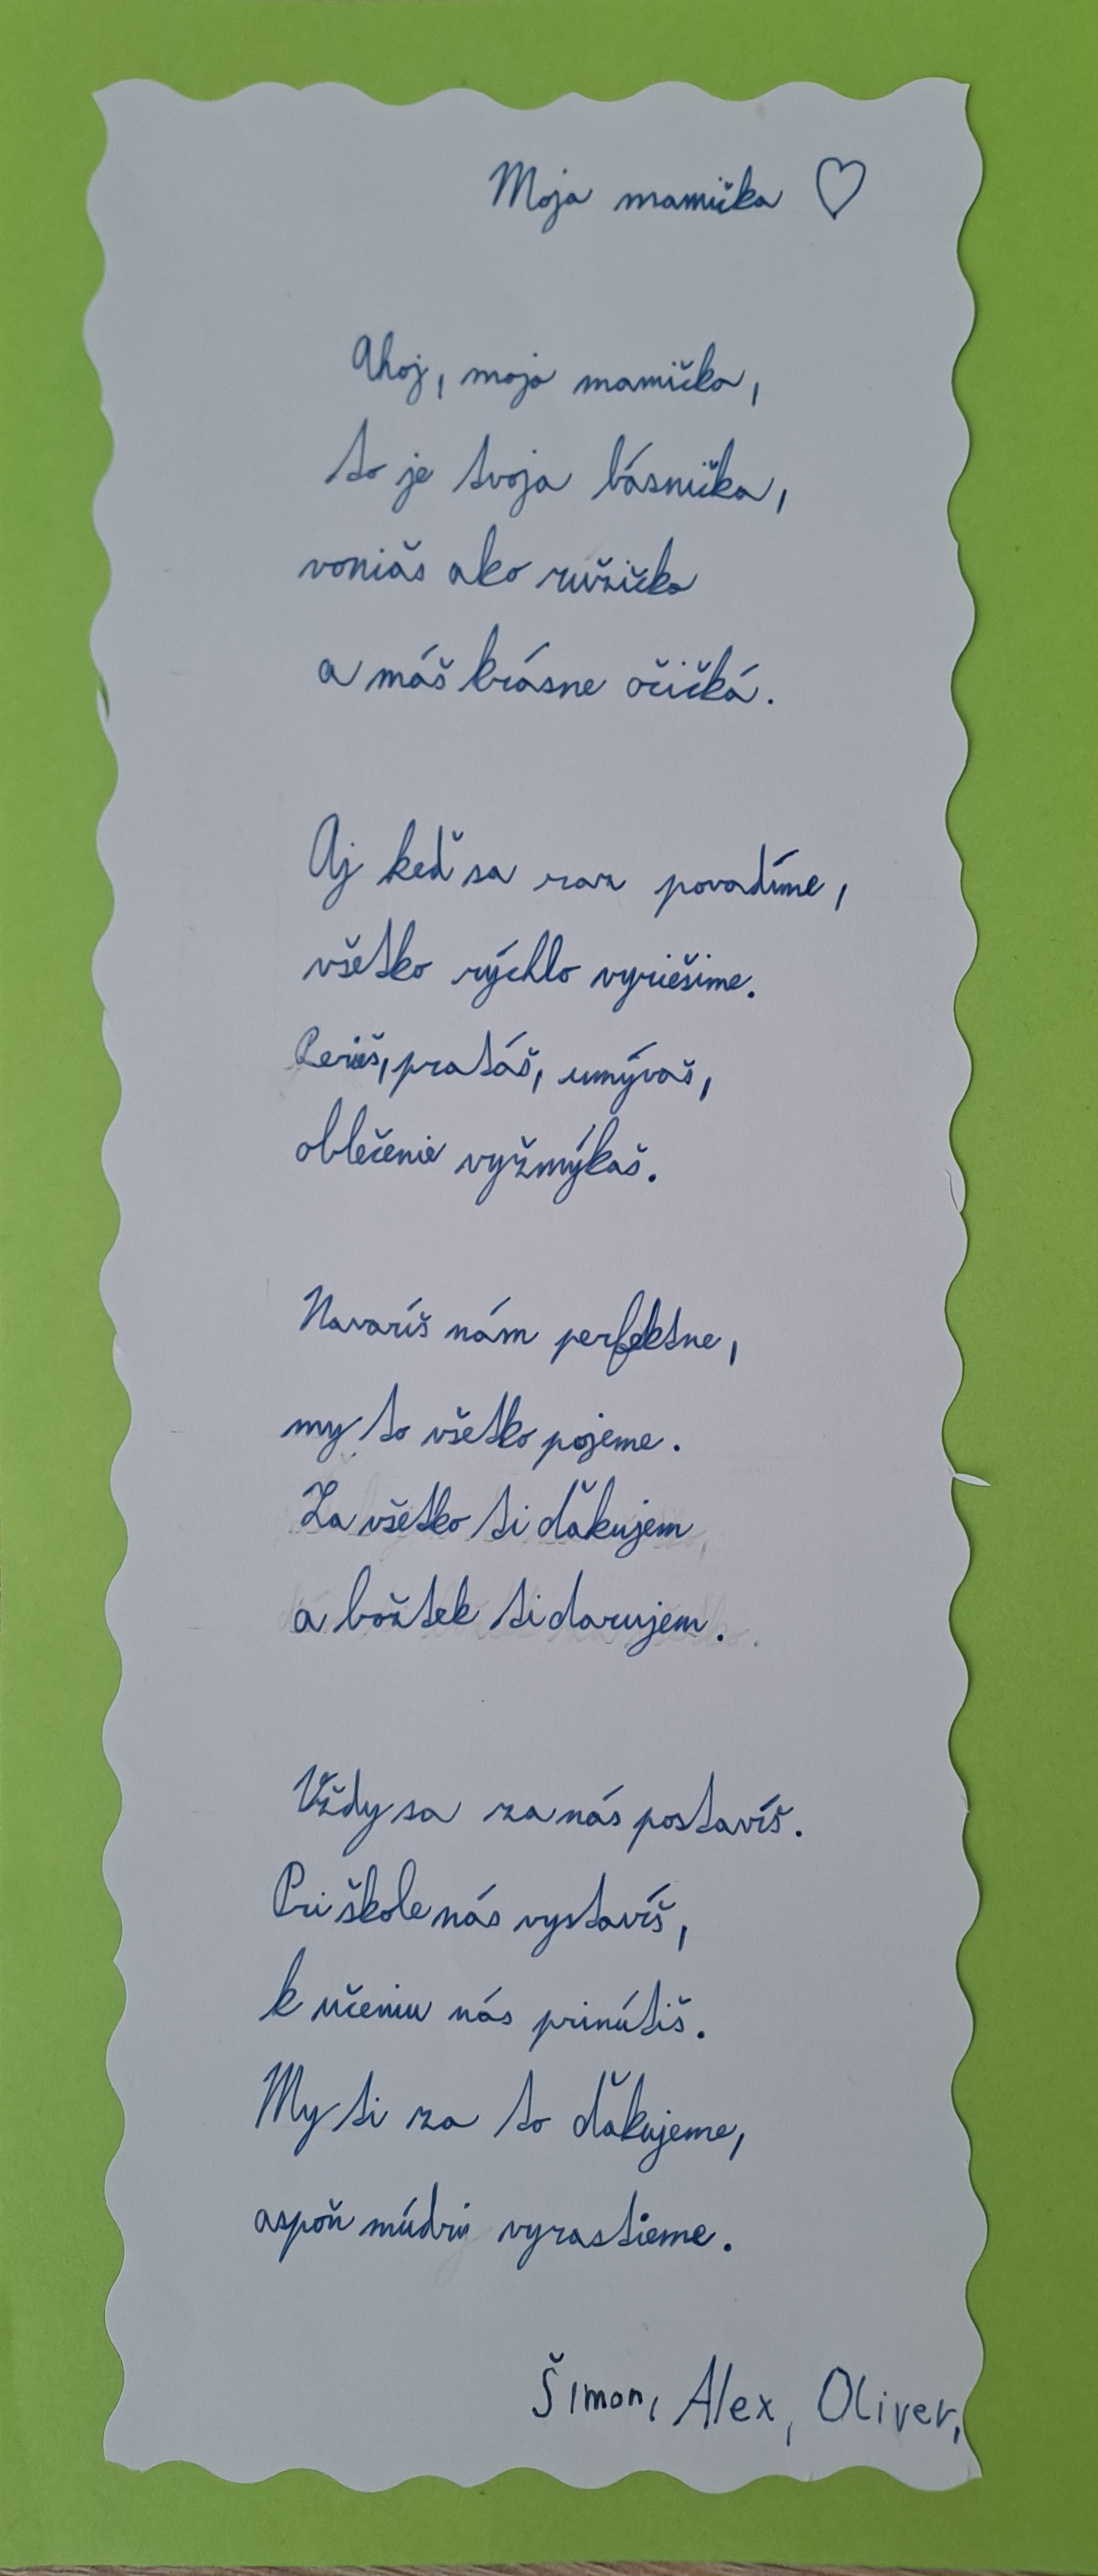 Moja mamička ♡
Ahoj, moja mamička,
to je tvoja básnička,
voniaš ako ružička
a máš krásne očičká.
Aj keď sa raz povadíme,
všetko rýchlo vyriešime.
Perieš, pratáš, umývaš,
oblečenie vyžmýkaš.
Navaríš nám perfektne,
my to všetko pojeme.
Za všetko ti ďakujem
a božtek ti darujem.
Vždy sa za nás postavíš.
Pri škole nás vystavíš,
k učeniu nás prinútiš.
My ti za to ďakujeme,
aspoň múdri vyrastieme.
Šimon, Alex, Oliver,